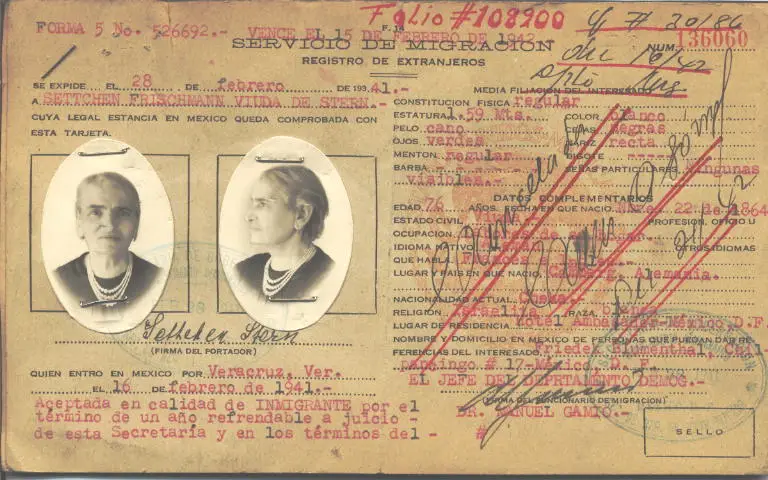 FORMA 5 No. 526692.- VENCE EL 15 DE FEBRERO DE 1942.-
Folio #108900
F. 14
SERVICIO DE MIGRACION
NUM. 136060
REGISTRO DE EXTRANJEROS
SE EXPIDE EL 28 DE febrero DE 1941.-
A SETTCHEN FRISCHMANN VIUDA DE STERN.-
CUYA LEGAL ESTANCIA EN MEXICO QUEDA COMPROBADA CON
ESTA TARJETA.
Settchen Stern
(FIRMA DEL PORTADOR)
QUIEN ENTRO EN MEXICO POR Veracruz, Ver.
EL 16 DE febrero de 1941.-
Aceptada en calidad de INMIGRANTE por el
término de un año refrendable a juicio -
de esta Secretaría y en los términos del -
MEDIA FILIACION DEL INTERESADO
CONSTITUCION FISICA regular
ESTATURA 1.59 Mts. COLOR blanco
PELO cano CEJAS negras
OJOS verdes NARIZ recta
MENTON regular BIGOTE -----
BARBA SEÑAS PARTICULARES Ningunas
visibles.-
DATOS COMPLEMENTARIOS
EDAD 76 AÑOS. FECHA EN QUE NACIO 22 de 1864
ESTADO CIVIL PROFESION, OFICIO U
OCUPACION
IDIOMA NATIVO OTROS IDIOMAS
QUE HABLA
LUGAR Y PAIS EN QUE NACIO Alemania.
NACIONALIDAD ACTUAL
RELIGION Israelita RAZA blanca
LUGAR DE RESIDENCIA Hotel Ambassader-México, D.F.
NOMBRE Y DOMICILIO EN MEXICO DE PERSONAS QUE PUEDAN DAR RE-
FERENCIAS DEL INTERESADO. Friedel Blumenthal, Chil-
pancingo # 17-México, D. F.
EL JEFE DEL DEPRTAMENTO DEMOG.-
(FIRMA DEL FUNCIONARIO DE MIGRACION)
DR. MANUEL GAMIO.-
#
SELLO